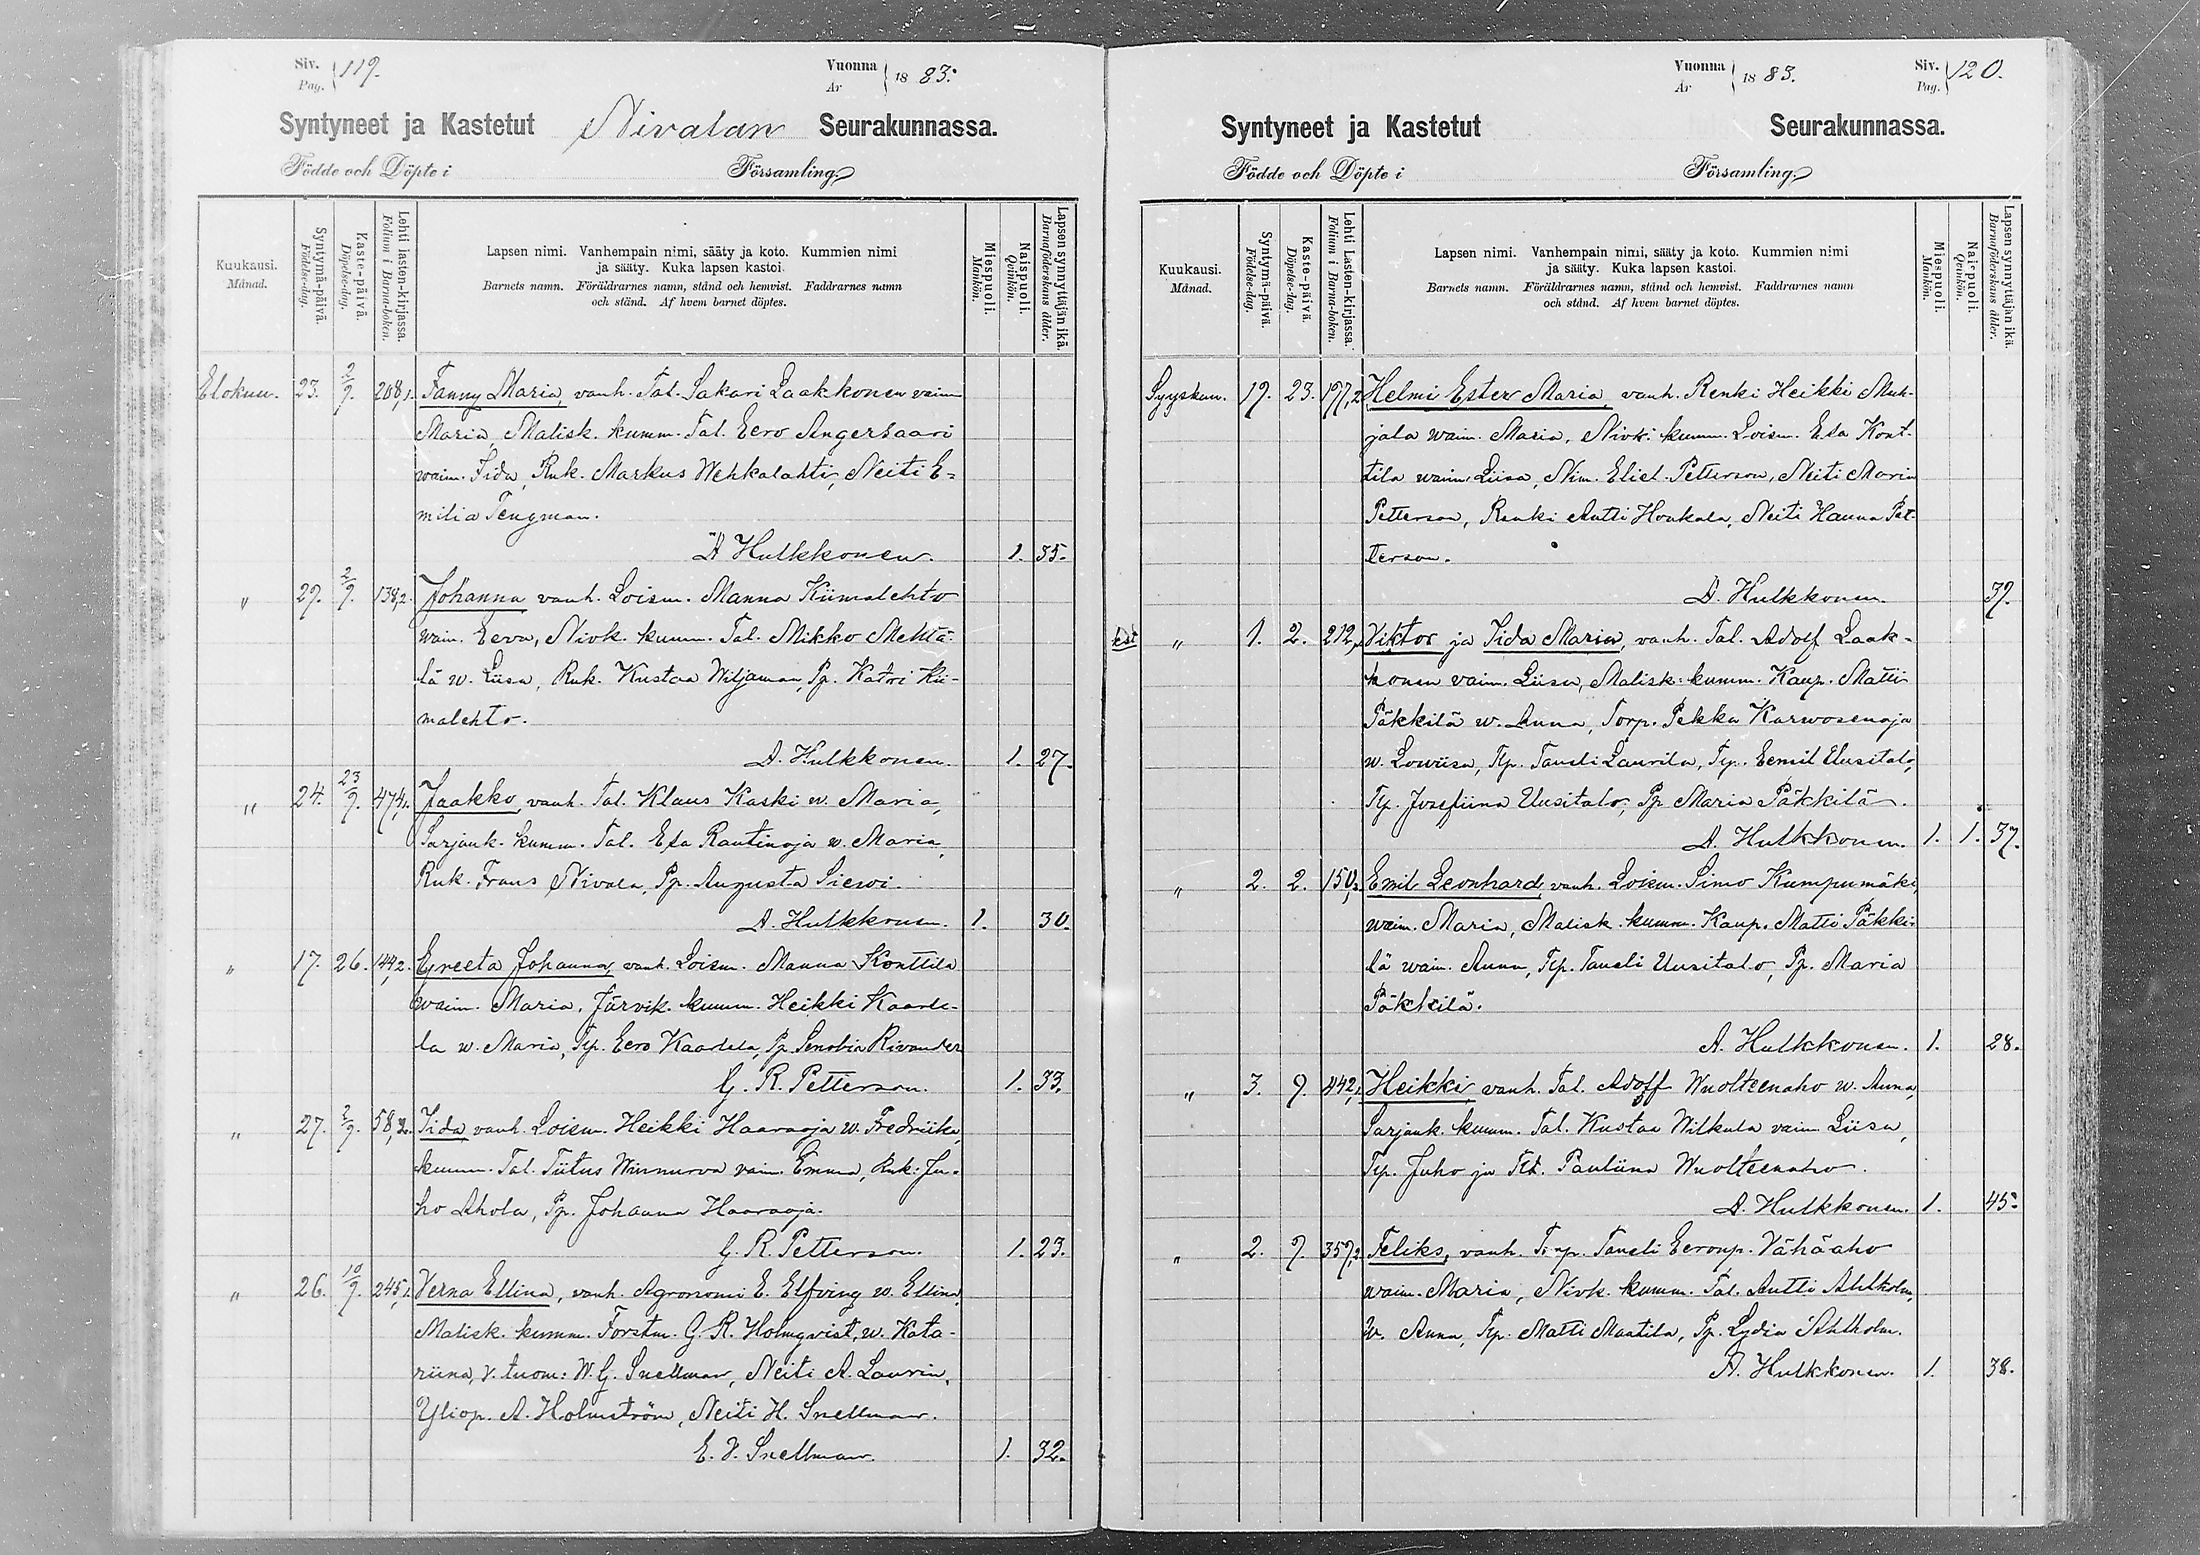 Siv. Pag. 119.
Vuonna År 1883.
Syntyneet ja Kastetut Nivalan Seurakunnassa.
Födde och Döpte i Församling.
Kuukausi. Månad.
Syntymä-päivä. Födelse-dag.
Kaste-päivä. Döpelse-dag.
Lehti lasten-kirjassa. Folium i Barna-boken.
Lapsen nimi. Vanhempain nimi, sääty ja koto. Kummien nimi
ja sääty. Kuka lapsen kastoi.
Barnets namn. Föräldrarnes namn, stånd och hemvist. Faddrarnes namn
och stånd. Af hvem barnet döptes.
Miespuoli. Mankön.
Naispuoli. Qvinkön.
Lapsen synnyttäjän ikä. Barnaföderskans ålder.
Elokuu. 23. 2/9. 208,1. Fanny Maria, vanh. Tal. Sakari Laakkonen vaim
Maria, Malisk. kumm. Tal. Eero Angersaari
waim. Iida, Rnk. Markus Wehkalahti, Neiti E=
milia Tengman.
A Hulkkonen. 1. 35.
" 29. 2/9. 138,2. Johanna vanh. Loism. Manna Kiimalehto
waim. Eeva, Nivk. kumm. Tal. Mikko Mehtä-
lä w. Liisa, Rnk. Kustaa Wiljamaa, Pp. Katri Kii-
malehto.
A. Hulkkonen. 1. 27.
" 24. 23/9. 474,1. Jaakko, vanh. Tal. Klaus Kaski w. Maria,
Sarjank. kumm. Tal. Esa Rautinoja w. Maria,
Rnk. Frans Nivala, Pp. Augusta Siewi.
A. Hulkkonen. 1. 30.
" 17. 26. 144,2. Greeta Johanna, vanh. Loism. Manna Konttila
waim. Maria, Järvik. kumm. Heikki Kaarle-
la w. Maria, Tp. Eero Kaarlela, Pp. Senobia Rivander
G. R. Petterson. 1. 33.
" 27. 2/9. 58,2. Iida, vanh. Loism. Heikki Haaraoja w. Fredriika,
kumm. Tal. Tiitus Winnurva vaim. Emma, Rnk. Ju-
ho Ahola, Pp. Johanna Haaraoja.
G. R. Petterson. 1. 23.
" 26. 10/9. 245,1. Verna Ellina, vanh. Agronomi E. Elfving w. Ellina,
Malisk. kumm. Forstm. G. R. Holmqvist, w. Kata-
riina, v. tuom: W. G. Snellman, Neiti A. Laurin,
Yliop. A. Holmström, Neiti H. Snellman.
E. V. Snellman. 1. 32.
Vuonna År 1883.
Siv. Pag. 120.
Syntyneet ja Kastetut Seurakunnassa.
Födde och Döpte i Församling.
Kuukausi. Månad.
Syntymä-päivä. Födelse-dag.
Kaste-päivä. Döpelse-dag.
Lehti Lasten-kirjassa. Folium i Barna-boken.
Lapsen nimi. Vanhempain nimi, sääty ja koto. Kummien nimi
ja sääty. Kuka lapsen kastoi.
Barnets namn. Föräldrarnes namn, stånd och hemvist. Faddrarnes namn
och stånd. Af hvem barnet döptes.
Miespuoli. Mankön.
Naispuoli. Qvinkön.
Lapsen synnyttäjän ikä. Barnaföderskans ålder.
Syyskuu. 19. 23. 197,2. Helmi Ester Maria, vanh. Renki Heikki Muh-
jala waim. Maria, Nivk: kumm. Loism. Esa Kont-
tila waim. Liisa, Nim. Eliel Petterson, Neiti Maria
Petterson, Renki Antti Honkala, Neiti Hanna Pet-
terson.
A. Hulkkonen. 39.
" 1. 2. 212, Viktor ja Iida Maria, vanh. Tal. Adolf Laak-
konen vaim. Liisa, Malisk: kumm. Kaup. Matti
Päkkilä w. Anna, Torp. Pekka Karwosenoja
w. Lowiisa, Tp. Taneli Laurila, Tp. Eemil Uusitalo,
Ty. Josefiina Uusitalo, Pp. Maria Päkkilä.
A. Hulkkonen. 1. 1. 37.
" 2. 2. 150, Emil Leonhard, vanh. Loism. Simo Kumpumäki,
waim. Maria, Malisk. kumm. Kaup. Matti Päkki-
lä waim. Anna, Tp. Taneli Uusitalo, Pp. Maria
Päkkilä.
A. Hulkkonen. 1. 28.
" 3. 9. 442,1. Heikki, vanh. Tal. Adolf Wuolteenaho w. Anna,
Sarjank. kumm. Tal. Kustaa Wilkula vaim. Liisa,
Tp. Juho ja Tt. Pauliina Wuolteenaho.
A. Hulkkonen. 1. 45.
" 2. 9. 357,2. Feliks, vanh. Torp. Taneli Eeronp. Vähäaho
waim. Maria, Nivk. kumm. Tal. Antti Ahlholm,
w. Anna, Tp. Matti Maatila, Pp. Lydia Ahlholm.
A. Hulkkonen. 1. 38.